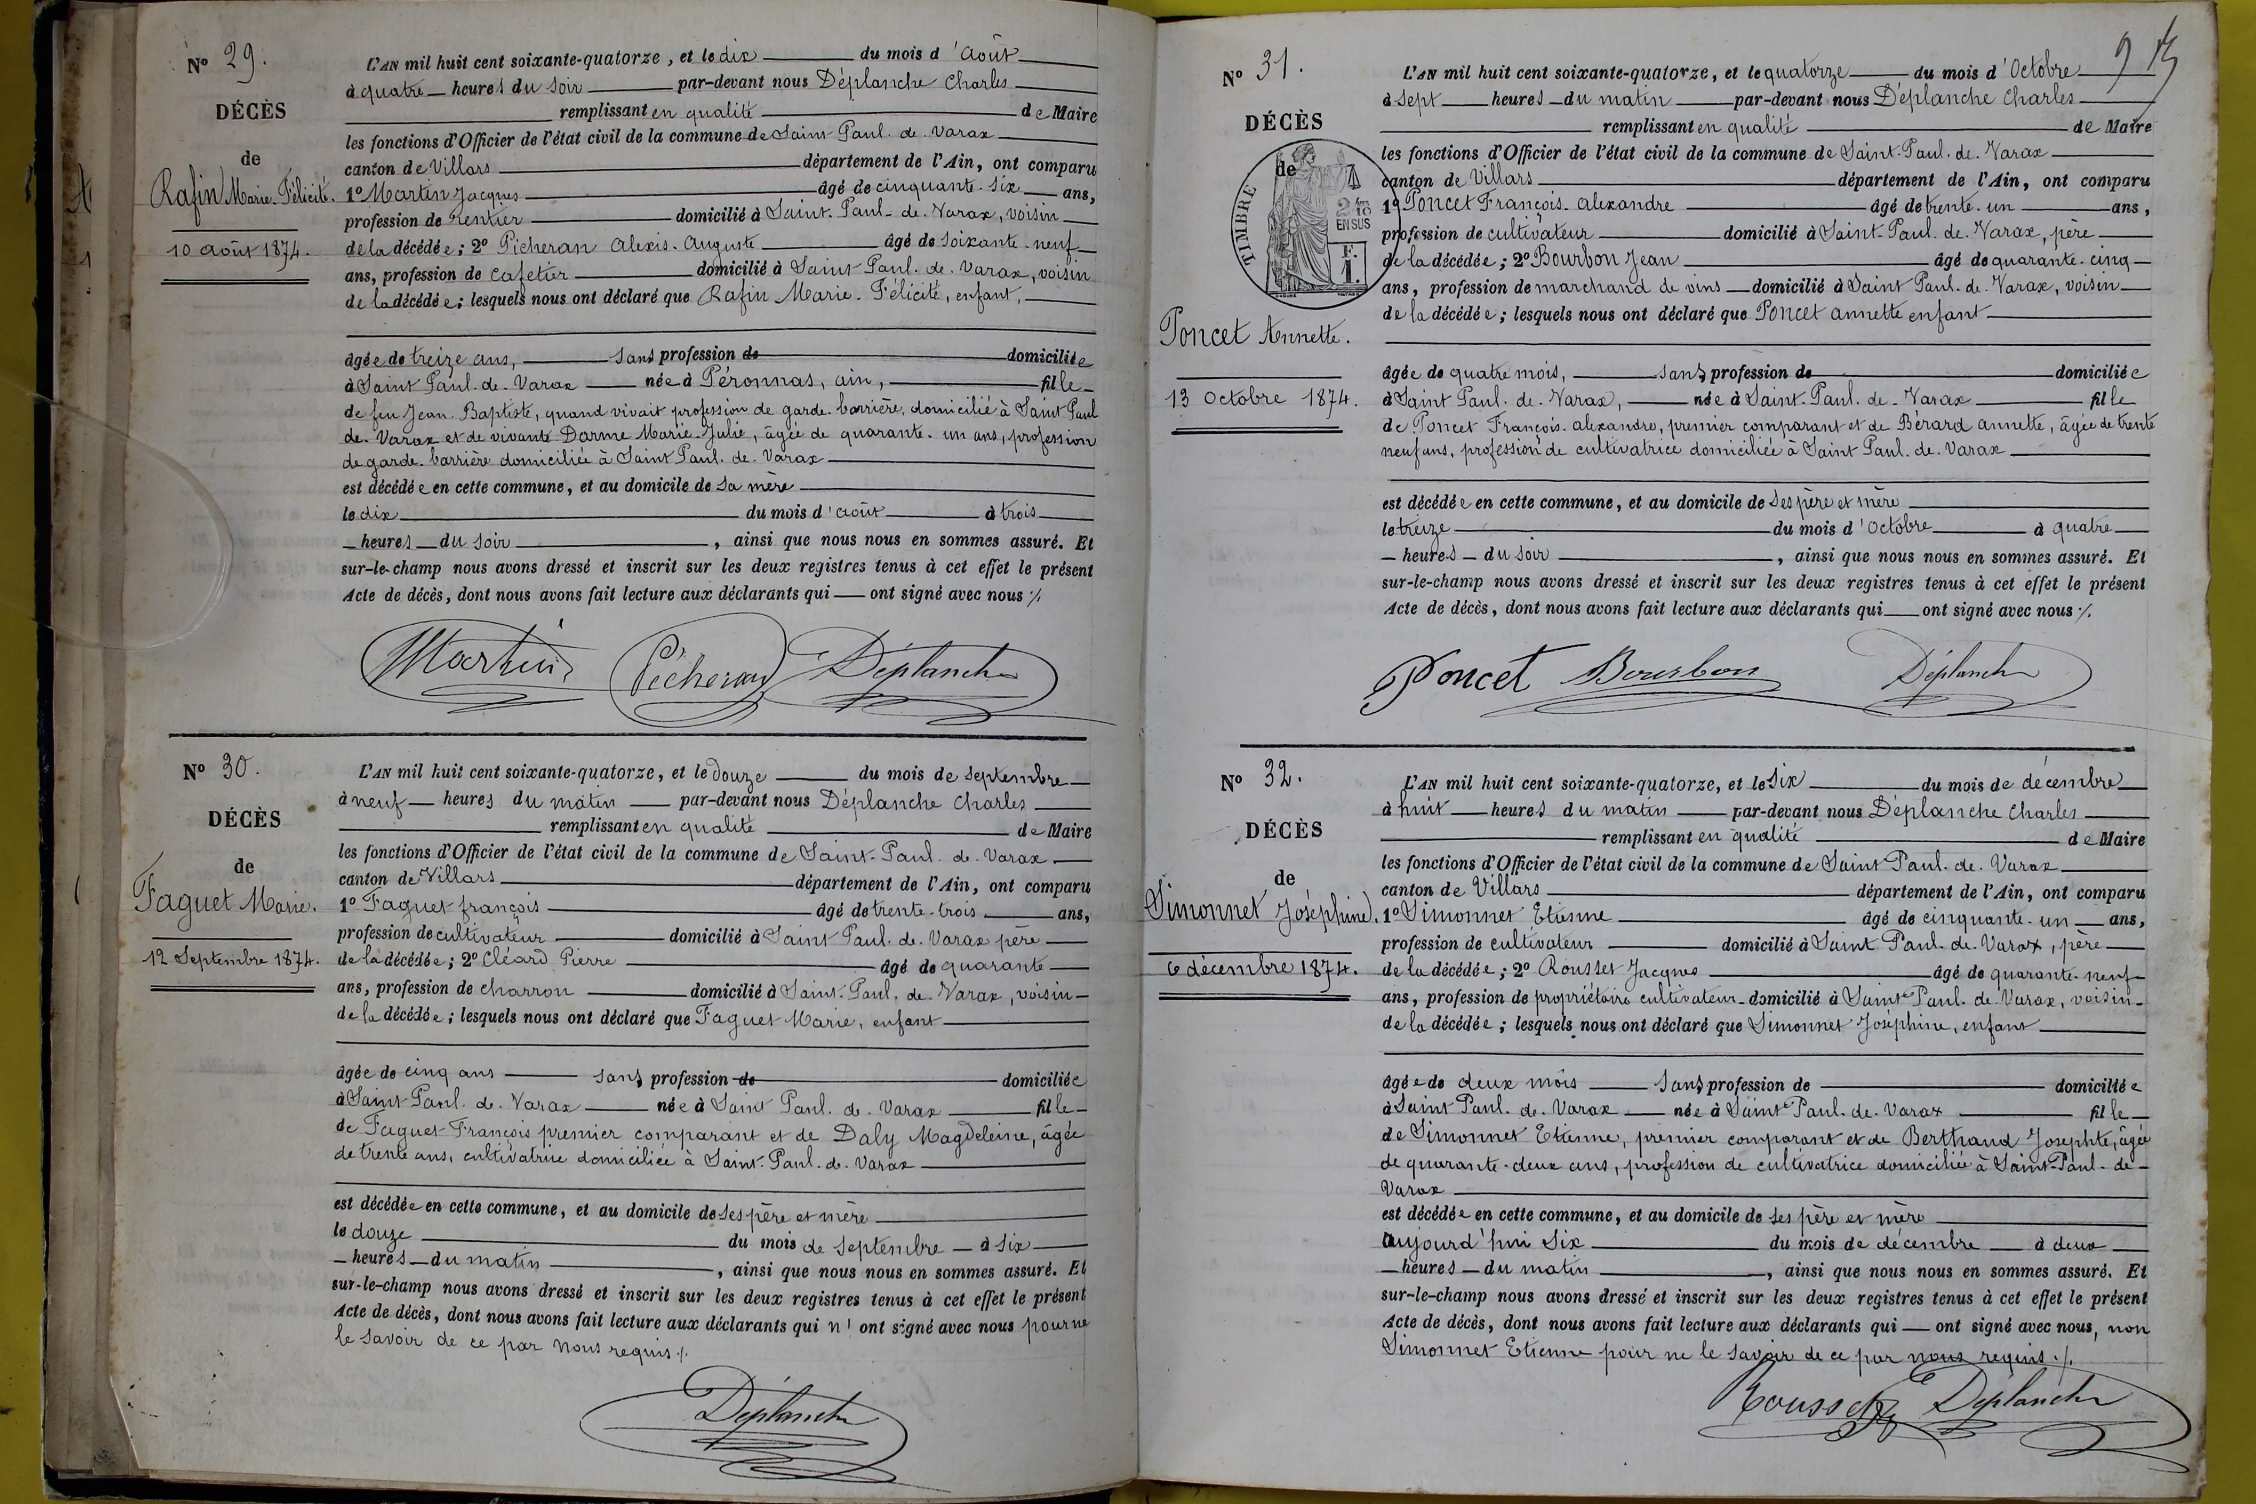 Nº 29.
DÉCÈS
de
Rafin Marie-Félicité.
10 Août 1874.
L'AN mil huit cent soixante-quatorze, et le dix du mois d'Août
à quatre heures du soir par-devant nous Déplanche Charles
remplissant en qualité de Maire
les fonctions d'Officier de l'état civil de la commune de Saint-Paul-de-Varax
canton de Villars département de l'Ain, ont comparu
1º Martin Jacques âgé de cinquante-six ans,
profession de rentier domicilié à Saint-Paul-de-Varax, voisin
de la décédée; 2º Picheran Alexis-Auguste âgé de soixante-neuf
ans, profession de cafetier domicilié à Saint Paul-de-Varax, voisin
de la décédée; lesquels nous ont déclaré que Rafin Marie-Félicité, enfant,
âgée de treize ans, sans profession de domiciliée
à Saint Paul-de-Varax née à Péronnas, ain, fille
de feu Jean-Baptiste, quand vivait profession de garde-barrière, domicilié à Saint Paul
de-Varax et de vivante Darme Marie-Julie, âgée de quarante-un ans, profession
de garde-barrière domiciliée à Saint Paul-de-Varax
est décédée en cette commune, et au domicile de sa mère
le dix du mois d'août à trois
heures du soir, ainsi que nous nous en sommes assuré. Et
sur-le-champ nous avons dressé et inscrit sur les deux registres tenus à cet effet le présent
Acte de décès, dont nous avons fait lecture aux déclarants qui ont signé avec nous ./.
Martin Pécheran Déplanche
Nº 30.
DÉCÈS
de
Faguet Marie.
12 Septembre 1874.
L'AN mil huit cent soixante-quatorze, et le douze du mois de septembre
à neuf heures du matin par-devant nous Déplanche Charles
remplissant en qualité de Maire
les fonctions d'Officier de l'état civil de la commune de Saint-Paul-de-Varax
canton de Villars département de l'Ain, ont comparu
1º Faguet françois âgé de trente-trois ans,
profession de cultivateur domicilié à Saint Paul-de-Varax père
de la décédée; 2º Cléard Pierre âgé de quarante
ans, profession de charron domicilié à Saint-Paul-de-Varax, voisin
de la décédée; lesquels nous ont déclaré que Faguet Marie, enfant
âgée de cinq ans sans profession de domiciliée
à Saint Paul-de-Varax née à Saint Paul-de-Varax fille
de Faguet François premier comparant et de Daly Magdeleine, âgée
de trente ans, cultivatrice domiciliée à Saint-Paul-de-Varax
est décédée en cette commune, et au domicile de ses père et mère
le douze du mois de septembre à six
heures du matin, ainsi que nous nous en sommes assuré. Et
sur-le-champ nous avons dressé et inscrit sur les deux registres tenus à cet effet le présent
Acte de décès, dont nous avons fait lecture aux déclarants qui n'ont signé avec nous pour ne
le savoir de ce par nous requis ./.
Déplanche
Nº 31.
DÉCÈS
de
TIMBRE
2/10
EN SUS
F.
1.
Poncet Annette.
13 Octobre 1874.
L'AN mil huit cent soixante-quatorze, et le quatorze du mois d'Octobre
à sept heures du matin par-devant nous Déplanche Charles
remplissant en qualité de Maire
les fonctions d'Officier de l'état civil de la commune de Saint-Paul-de-Varax
canton de Villars département de l'Ain, ont comparu
1º Poncet François-Alexandre âgé de trente-un ans,
profession de cultivateur domicilié à Saint-Paul-de-Varax, père
de la décédée; 2º Bourbon Jean âgé de quarante-cinq
ans, profession de marchand de vins domicilié à Saint Paul-de-Varax, voisin
de la décédée; lesquels nous ont déclaré que Poncet annette enfant
âgée de quatre mois, sans profession de domiciliée
à Saint Paul-de-Varax, née à Saint-Paul-de-Varax fille
de Poncet François-alexandre, premier comparant et de Bérard annette, âgée de trente
neuf ans, profession de cultivatrice domiciliée à Saint Paul-de-Varax
est décédée en cette commune, et au domicile de ses père et mère
le treize du mois d'Octobre à quatre
heures du soir, ainsi que nous nous en sommes assuré. Et
sur-le-champ nous avons dressé et inscrit sur les deux registres tenus à cet effet le présent
Acte de décès, dont nous avons fait lecture aux déclarants qui ont signé avec nous ./.
Poncet Bourbon Déplanche
Nº 32.
DÉCÈS
de
Simonnet Joséphine.
6 décembre 1874.
L'AN mil huit cent soixante-quatorze, et le six du mois de décembre
à huit heures du matin par-devant nous Déplanche Charles
remplissant en qualité de Maire
les fonctions d'Officier de l'état civil de la commune de Saint Paul-de-Varax
canton de Villars département de l'Ain, ont comparu
1º Simonnet Etienne âgé de cinquante-un ans,
profession de cultivateur domicilié à Saint Paul-de-Varax, père
de la décédée; 2º Rousset Jacques âgé de quarante-neuf
ans, profession de propriétaire cultivateur domicilié à Saint Paul-de-Varax, voisin
de la décédée; lesquels nous ont déclaré que Simonnet Joséphine, enfant
âgée de deux mois sans profession de domiciliée
à Saint Paul-de-Varax née à Saint Paul-de-Varax fille
de Simonnet Etienne, premier comparant et de Berthaud Josephte, âgée
de quarante-deux ans, profession de cultivatrice domiciliée à Saint-Paul-de-
Varax
est décédée en cette commune, et au domicile de ses père et mère
aujourd'hui six du mois de décembre à deux
heures du matin, ainsi que nous nous en sommes assuré. Et
sur-le-champ nous avons dressé et inscrit sur les deux registres tenus à cet effet le présent
Acte de décès, dont nous avons fait lecture aux déclarants qui ont signé avec nous, non
Simonnet Etienne pour ne le savoir de ce par nous requis ./.
Rousset Déplanche